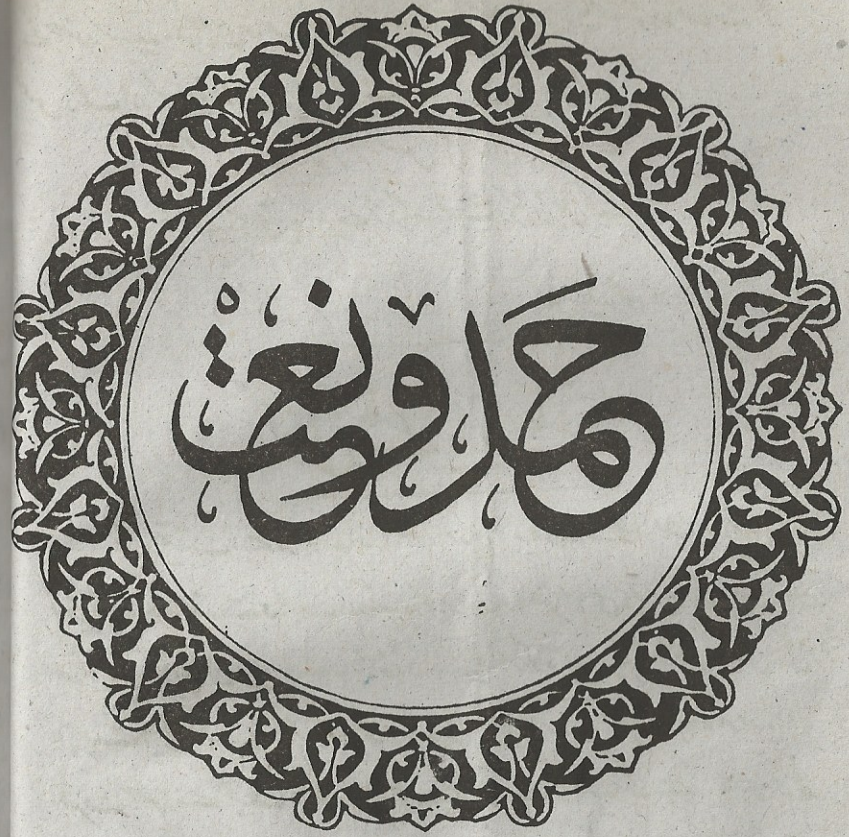 حمد و نعت